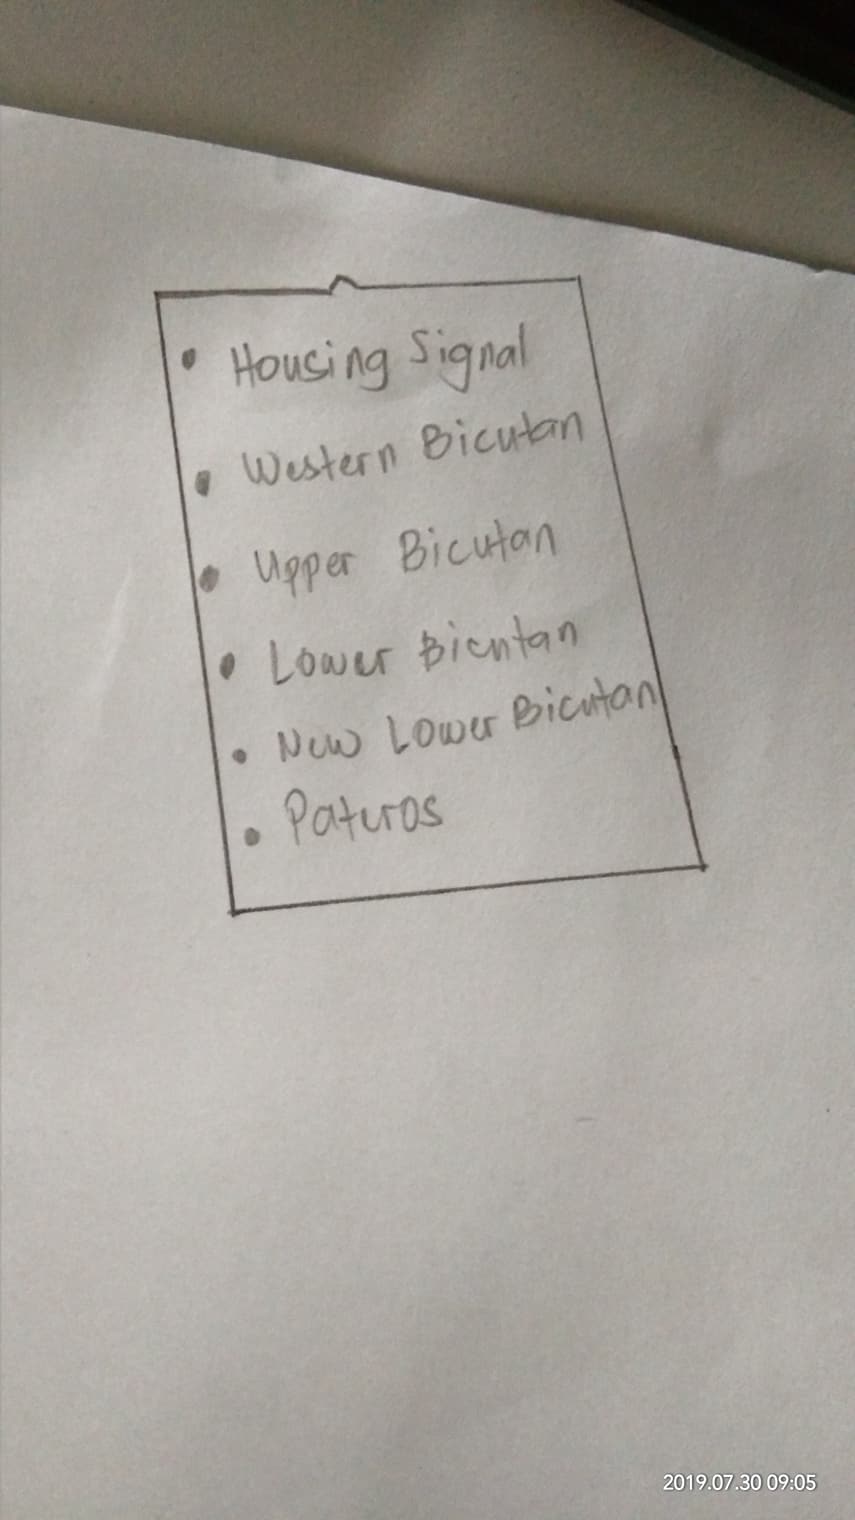 • Housing Signal
• Western Bicutan
• Upper Bicutan
• Lower Bicutan
• New Lower Bicutan
• Pateros
2019.07.30 09:05